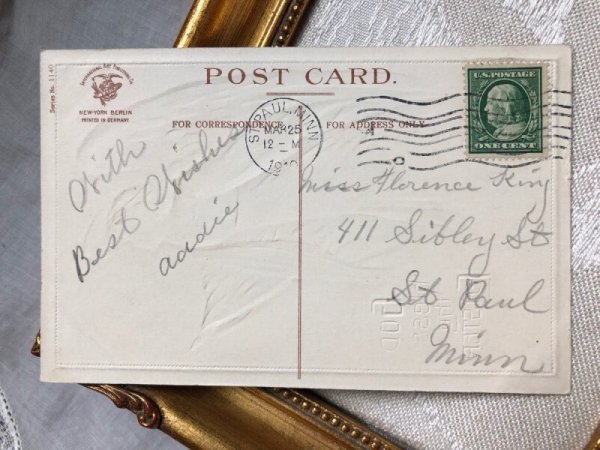 Series No. 1140
INTERNATIONAL ART PUBLISHING Co.
NEW-YORK BERLIN
PRINTED IN GERMANY
POST CARD.
FOR CORRESPONDENCE
FOR ADDRESS ONLY
ST. PAUL, MINN
MAR 25
12 - M
U.S. POSTAGE
ONE CENT
With
Best Wishes
Addie
Miss Florence King
411 Sibley St
St Paul
Minn